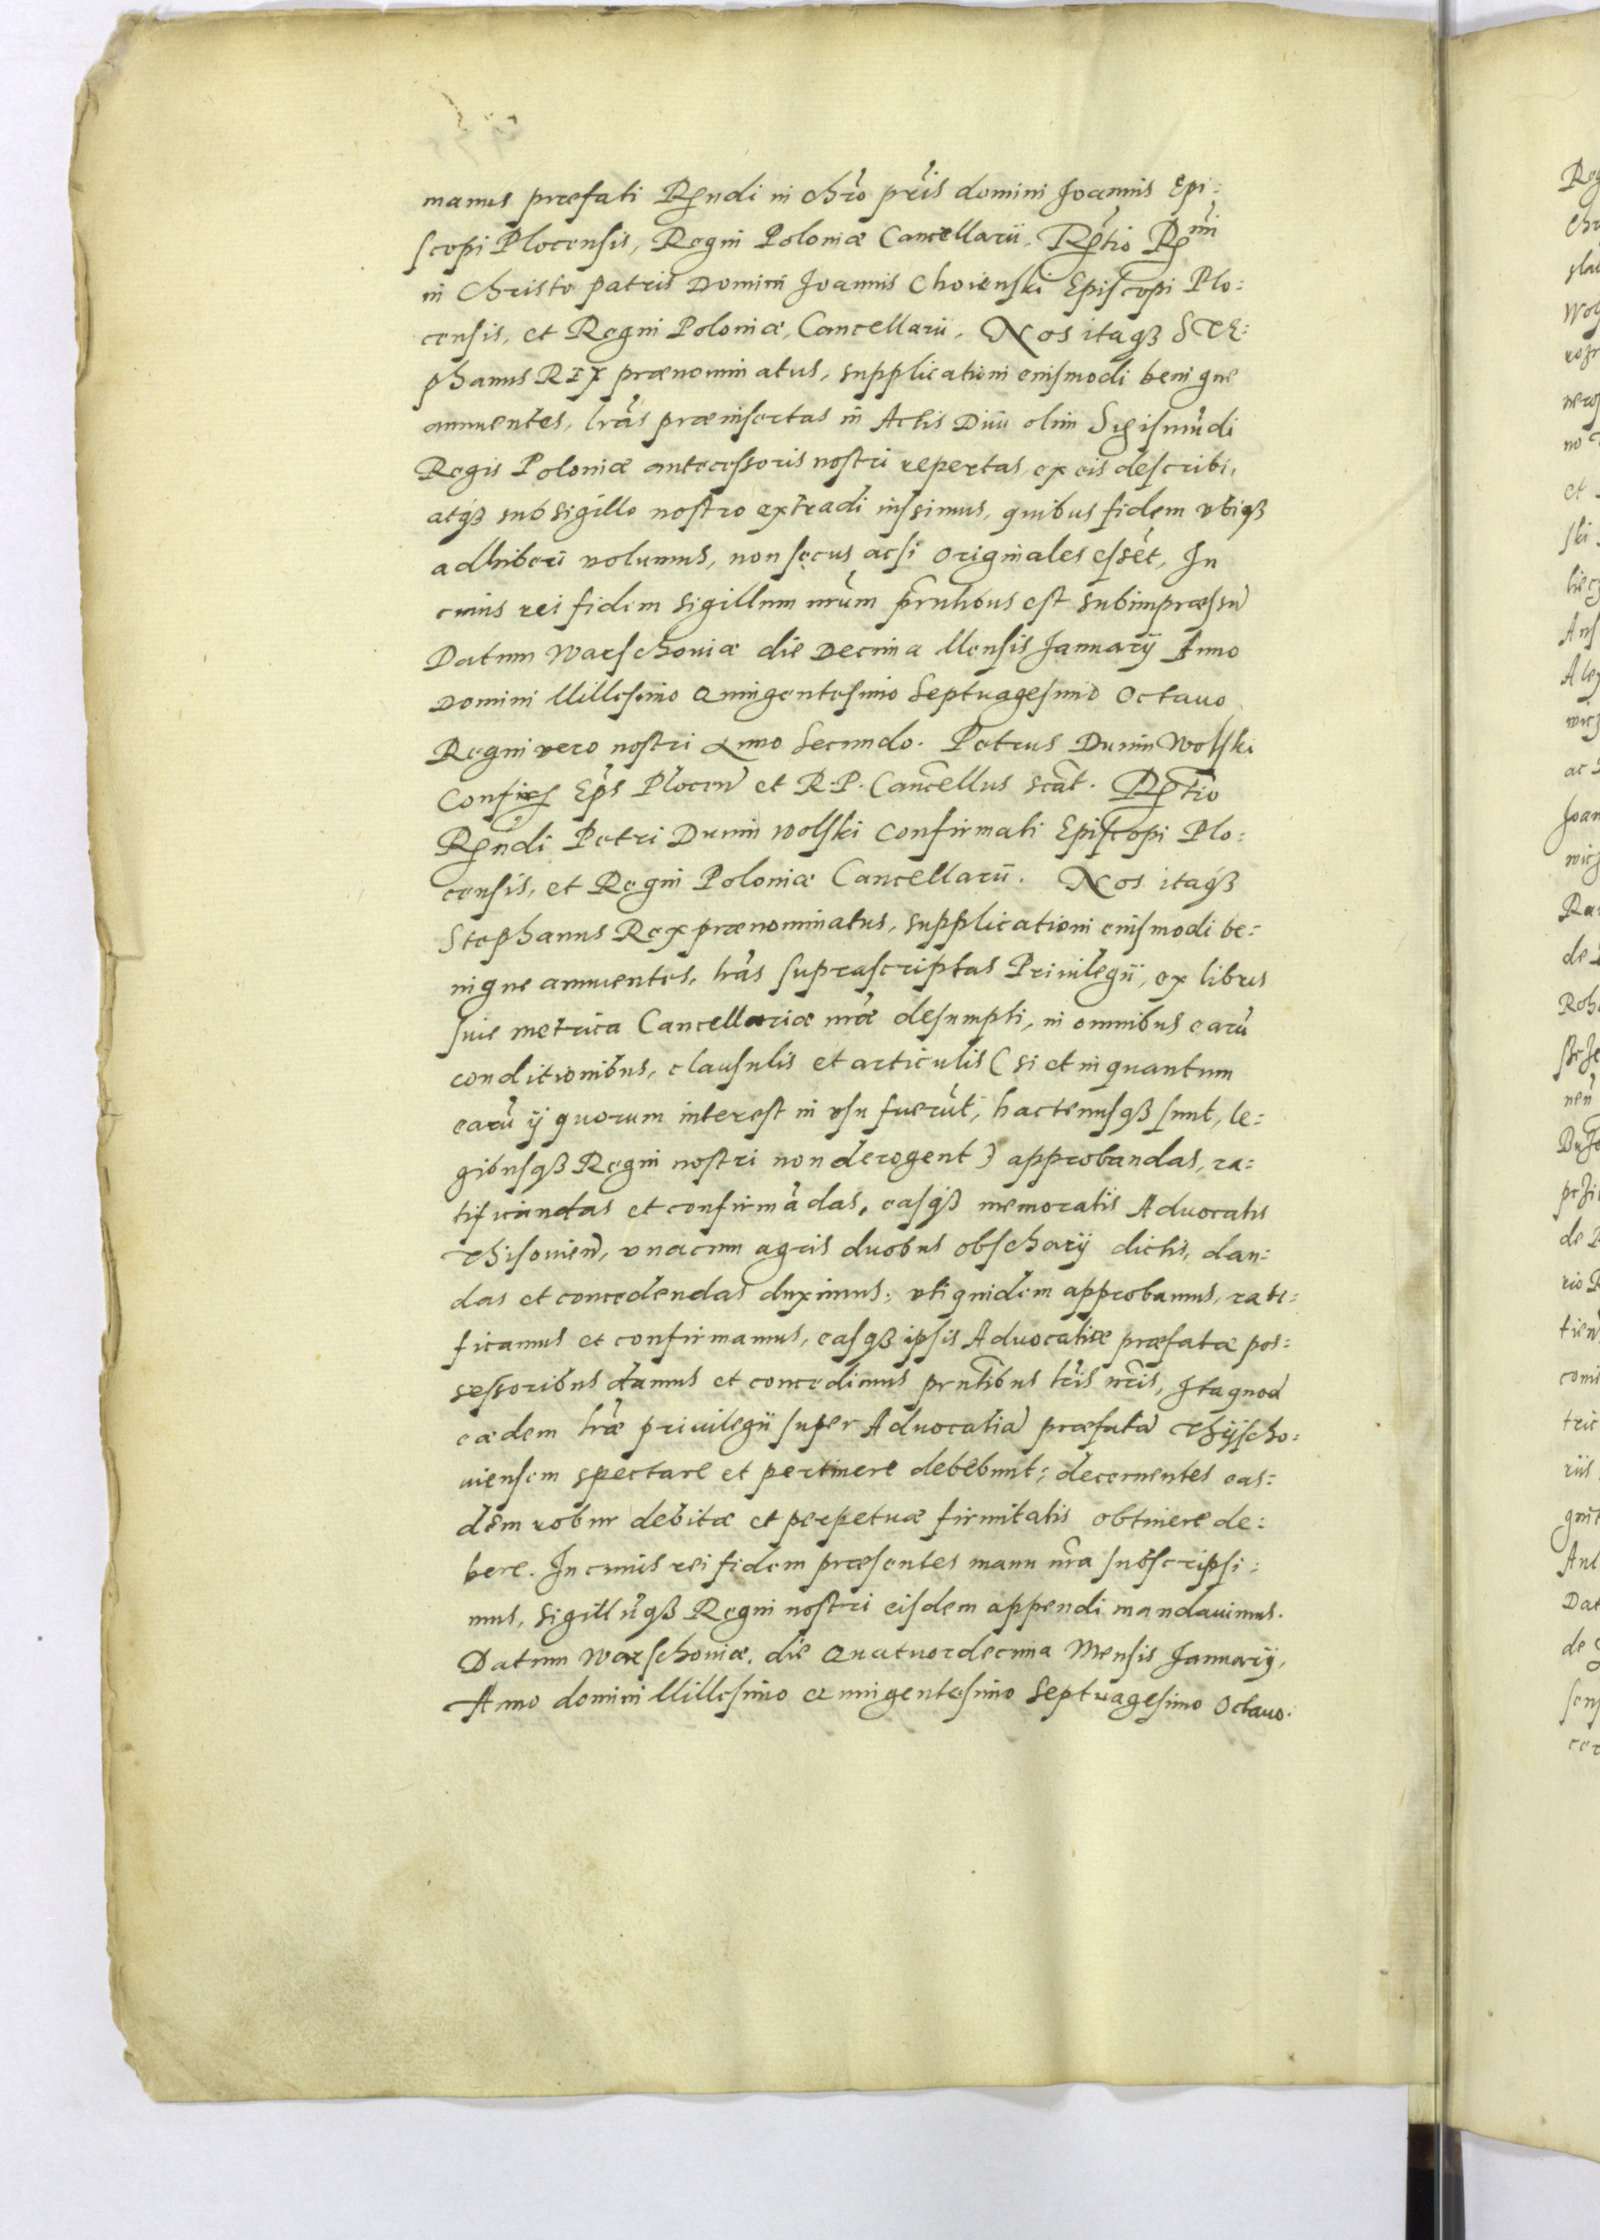 manus præfati Rndi in chrō prīs domini Joannis Epi:
scopi Plocensis, Regni Poloniæ Cancellarii. Rtio Rmi
in Christo patris Domini Joannis Choienski Episcopi Plo:
censis, et Regni Poloniæ, Cancellarii. Nos itaqꝫ STE:
phanus REX prænominatus, supplicationi eiusmodi benigne
annuentes, lrās præinsertas in Actis Diui olim Sigismūdi
Regis Poloniæ antecessoris nostri repertas, ex eis describi,
atqꝫ sub sigillo nostro extradi iussimus, quibus fidem vbiqꝫ
adhiberi volumus, non secus acsi originales essēt, In
cuius rei fidem sigillum nrūm prntibus est subimpræssū
Datum Warschouiæ die Decima Mensis Januarij Anno
Domini Millesimo Quingentesimo Septuagesimo Octauo
Regni vero nostri Anno Secundo. Petrus Dunin Wolski
Confir Eps Plocen̄ et R. P. Cancellus scāt. Rtio
Rndi Petri Dunin Wolski Confirmati Episcopi Plo:
censis, et Regni Poloniæ Cancellarii. Nos itaqꝫ
Stephanus Rex prænominatus, supplicationi eiusmodi be:
nigne annuentes, lrās suprascriptas Priuilegii, ex libris
siue metrica Cancellariæ nræ desumpti, in omnibus earū
conditionibus, clausulis et articulis (si et in quantum
earū ij quorum interest in vsu fuerūt, hactenusqꝫ sunt, le:
gibusqꝫ Regni nostri non derogent) approbandas, ra:
tificandas et confirmādas, easqꝫ memoratis Aduocatis
Thisouien̄, vnacum agris duobus obscharij dictis, dan:
das et concedendas duximus; vti quidem approbamus, rati:
ficamus et confirmamus, easqꝫ ipsis Aduocatiæ præfatæ pos:
sessoribus damus et concedimus prntibus lrīs nrīs, Ita quod
eædem lræ priuilegii super Aduocatiā præfatā Thijscho:
uiensem spectare et pertinere debebunt; decernentes eas:
dem robur debitæ et perpetuæ firmitatis obtinere de:
bere. In cuius rei fidem præsentes manu nrā subscripsi:
mus, sigillūqꝫ Regni nostri eisdem appendi mandauimus.
Datum Warschouiæ, die Quatuordecima Mensis Januarij,
Anno domini Millesimo Quingentesimo Septuagesimo Octauo.